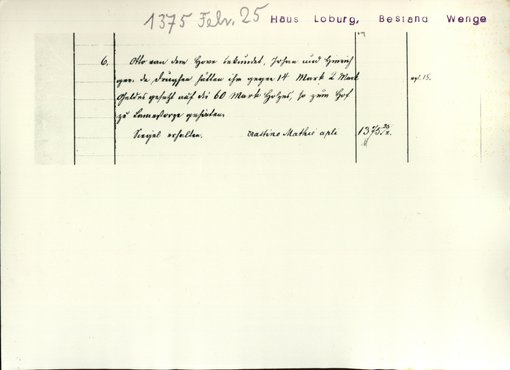 1375 Febr. 25 Haus Loburg, Bestand Wenge
6. Otto van dem Hove bekundet, Johan und Hinrich
gen. de hätten ihn gegen 14 Mark 2 Mark
Geldes gesetzt auf die 60 Mark so zum Hof
zu gehörten.
Siegel erhalten. crastino Mathie aple 1375 25/2.
vgl. 15.